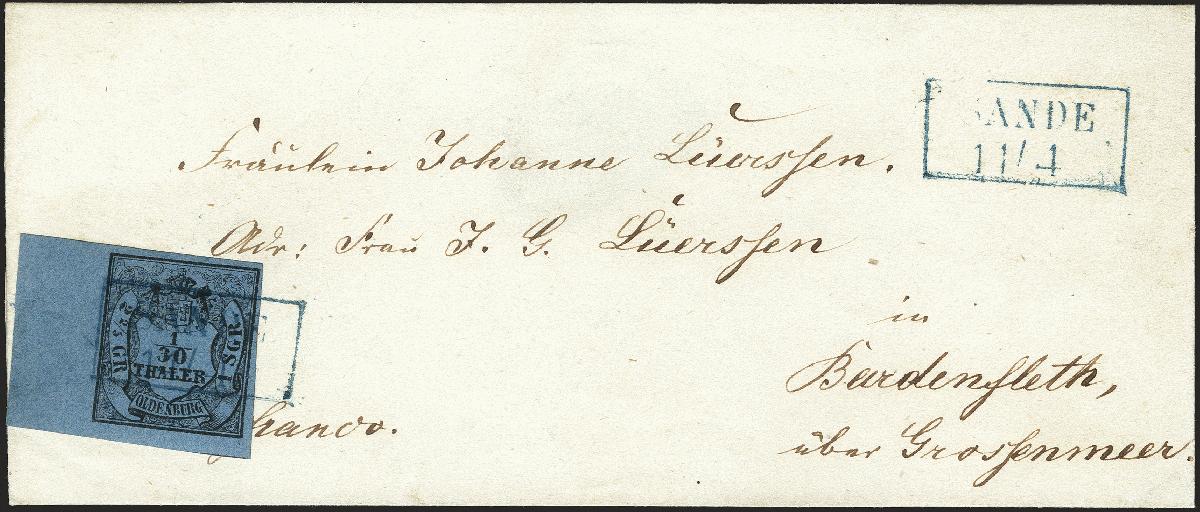 SANDE
11/4
Fräulein Johanne Lüerssen.
Adr: Frau J. G. Lüerssen
in
Bardenfleth,
über Grossenmeer.
franco.
2 2/3 GR
1/30
THALER
1 SGR
OLDENBURG